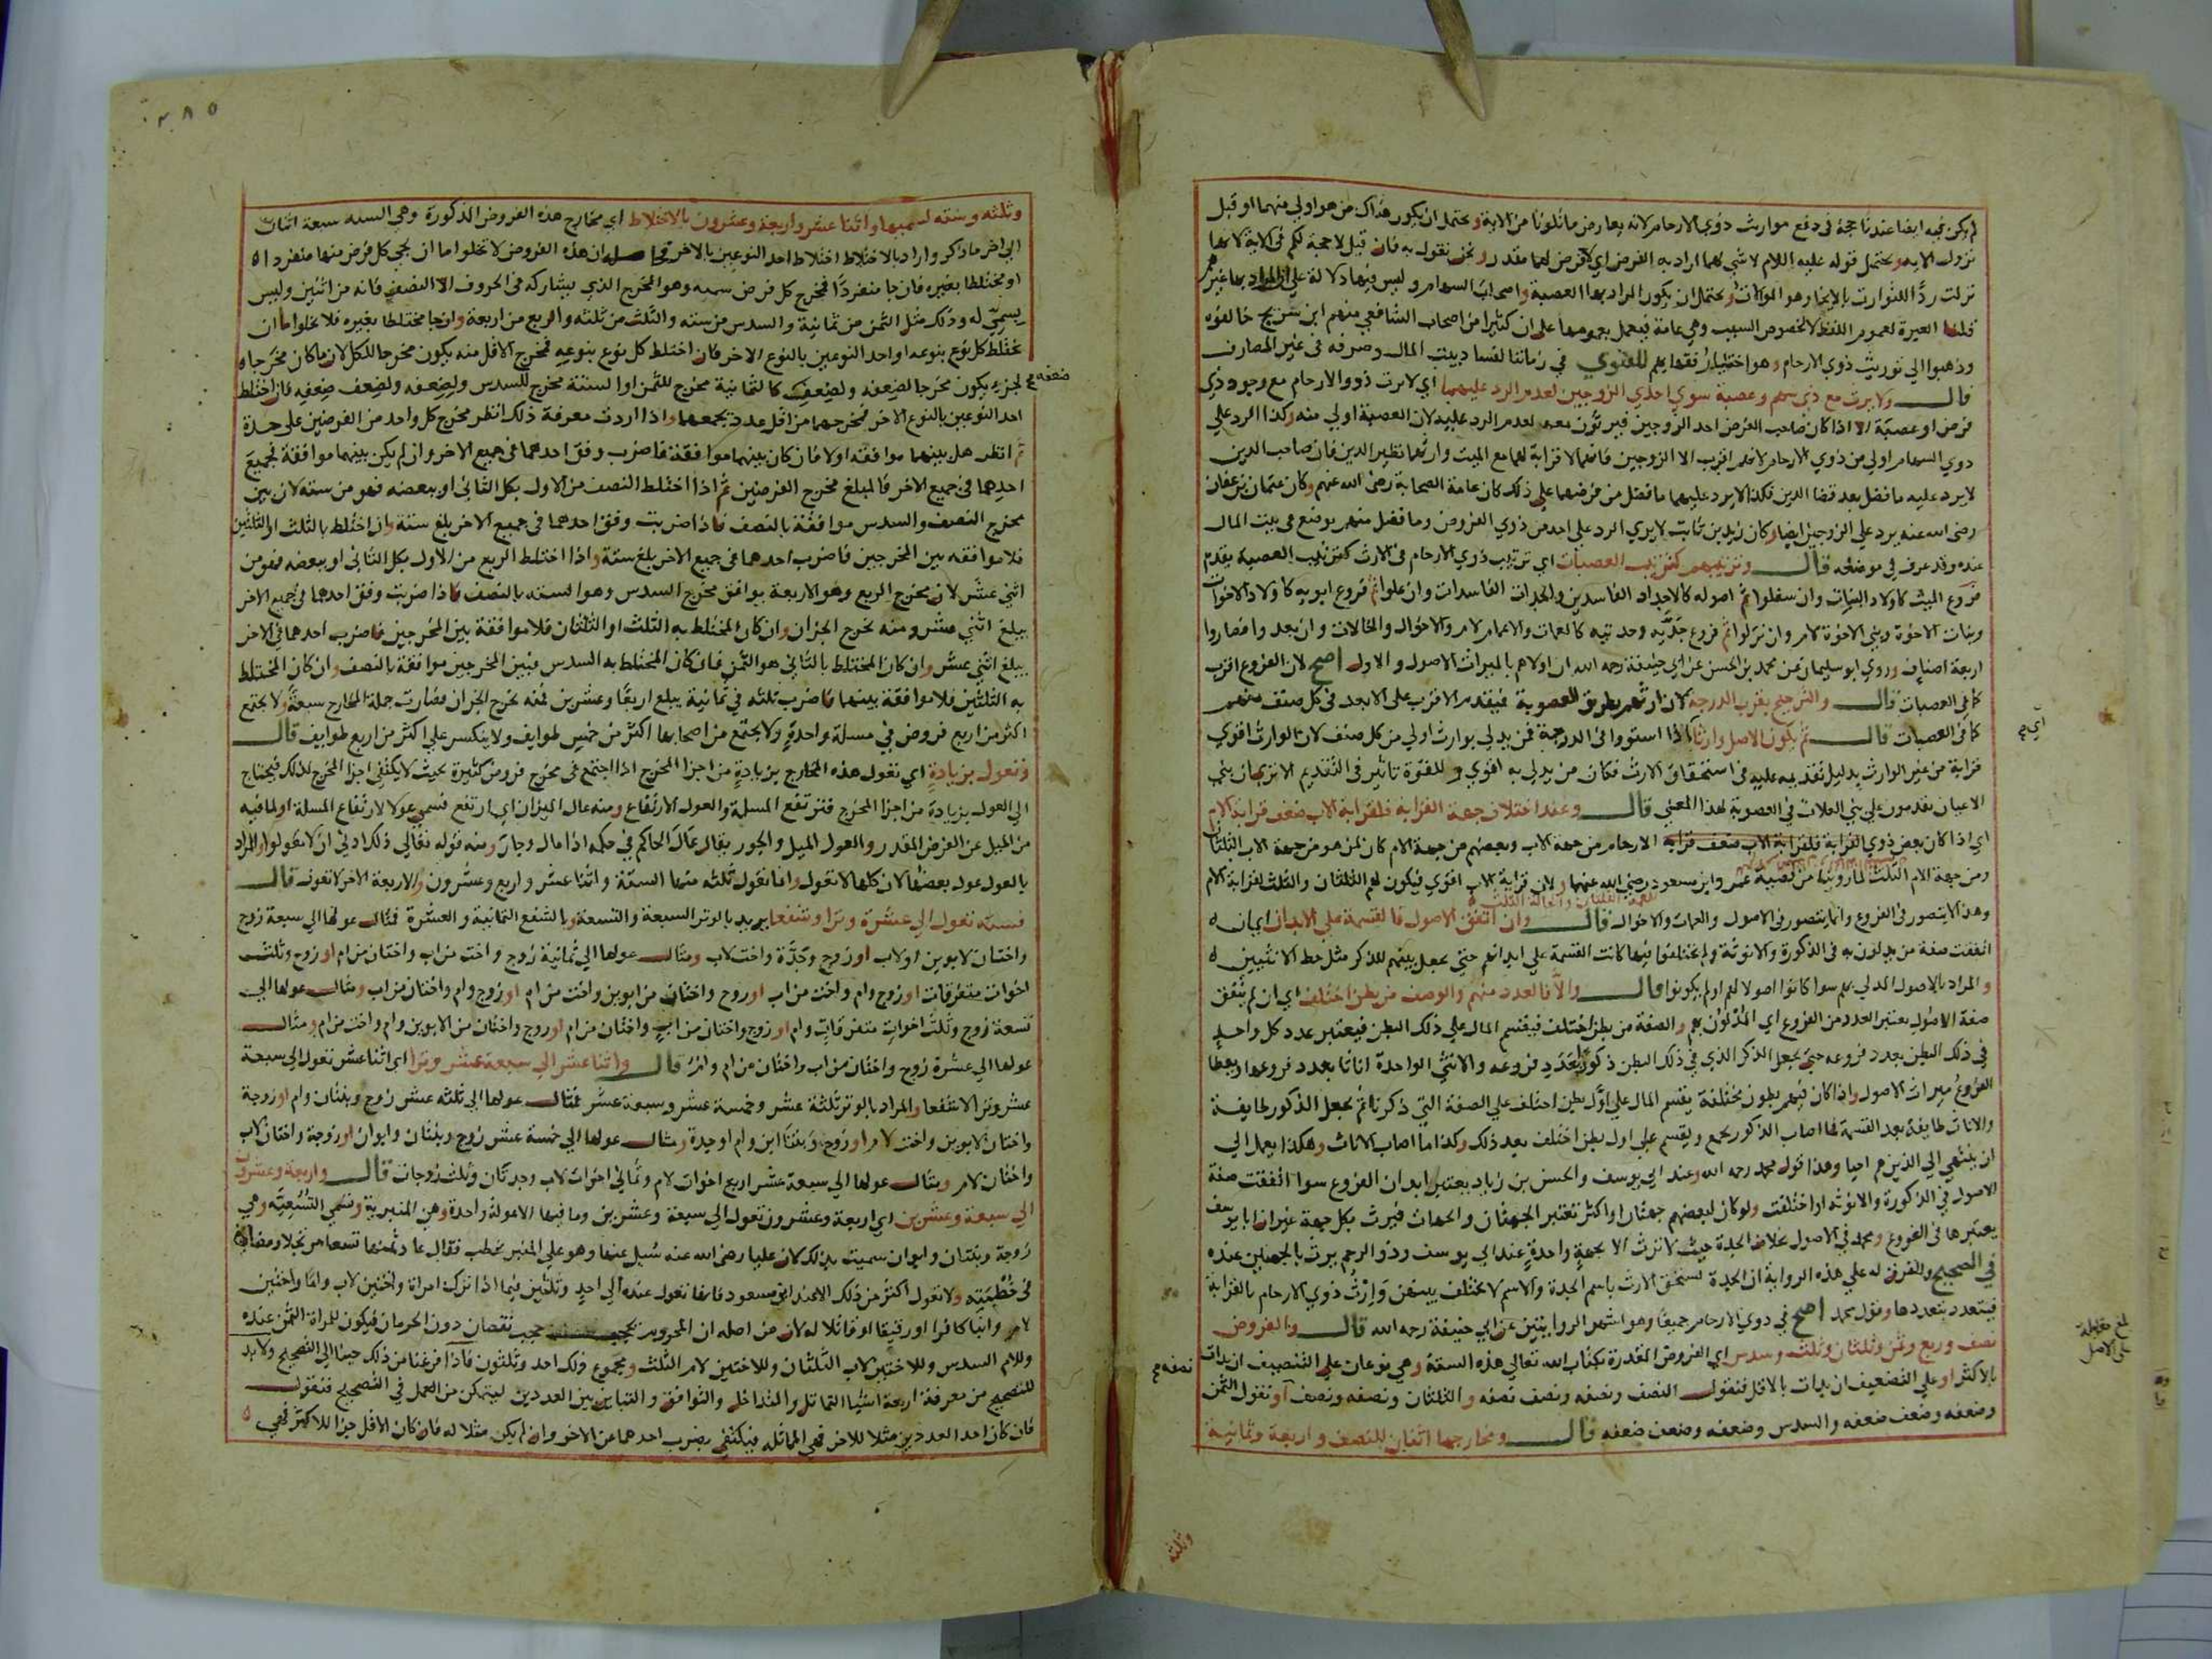 لم يكن فيه ايضا عندنا حجة في دفع مواريث ذوي الارحام لانه يعارض ما تلونا من الاية ويحتمل ان يكون هذاك من هو اولى منهما او قبل
نزول الاية ويحتمل قوله عليه اللام لا شي لهما اراد به الفرض اي لا فرض لهما مقدر ونحن نقول به فان قيل لا حجة لكم في الاية لانها
نزلت ردا للتوارث بالايجار وهو الموالات ويحتمل ان يكون المراد بها العصبة واصحاب السهام وليس فيها دلالة على ان المراد بها غيرهم
قلنا العبرة لعموم اللفظ لا لخصوص السبب وهي عامة فيعمل بعمومها على ان كثيرا من اصحاب الشافعي منهم ابن شريح خالفوه
وذهبوا الى توريث ذوي الارحام وهو اختيار فقهايهم للفتوي في زماننا لفساد بيت المال وصرفه في غير المصارف
قال ولا يرث مع ذي سهم وعصبة سوي احدي الزوجين لعدم الرد عليهما اي لا يرث ذووا الارحام مع وجود ذي
فرض او عصبة الا اذا كان صاحب الفرض احد الزوجين فيرثون معه لعدم الرد عليه لان العصبة اولى منه وكذا الرد على
ذوي السهام اولى من ذوي الارحام لانهم اقرب الا الزوجين فانهما لا قرابة لهما مع الميت وارثهما نظير الدين فان صاحب الدين
لا يرد عليه ما فضل بعد قضا الدين فكذا لا يرد عليهما ما فضل من فرضهما على ذلك كان عامة الصحابة رضى الله عنهم وكان عثمان بن عفان
رضى الله عنه يرد على الزوجين ايضا وكان زيد بن ثابت لا يري الرد على احد من ذوي الفروض وما فضل منهم يوضع في بيت المال
عنده وقد عرف في موضعه قال وترتيبهم كترتيب العصبات اي ترتيب ذوي الارحام في الارث كترتيب العصبة يقدم
فروع الميت كاولاد البنات وان سفلوا ثم اصوله كالاجداد الفاسدين والجدات الفاسدات وان علوا ثم فروع ابويه كاولاد الاخوات
وبنات الاخوة وبني الاخوة لام وان نزلوا ثم فروع جديه وجدتيه كالعمات والاعمام لام والاخوال والخالات وان بعدوا فصاروا
اربعة اصناف وروي ابو سليمان عن محمد بن الحسن عن ابي حنيفة رحمه الله ان اولاهم بالميراث الاصول والاول اصح لان الفروع اقرب
كما في العصبات قال والترجيح بقرب الدرجة لان ارثهم بطريق العصوبة فيقدم الاقرب على الابعد في كل صنف منهم
كما في العصبات قال ثم بكون الاصل وارثا اي اذا استووا في الدرجة فمن يدلي بوارث اولى من كل صنف لان الوارث اقوي
قرابة من غير الوارث بدليل تقدمه عليه في استحقاق الارث فكان من يدلي به اقوي وللقوة تاثير في التقديم الا تري ان بني
الاعيان يقدمون على بني العلات في العصوبة لهذا المعنى قال وعند اختلاف جهة القرابة فلقرابة الاب ضعف قرابة الام
اي اذا كان بعض ذوي الارحام من جهة الاب وبعضهم من جهة الام كان لمن هو من جهة الاب الثلثان
ومن جهة الام الثلث لما روينا من قضية عمر وابن مسعود رضي الله عنهما ولان قرابة الاب اقوي فيكون لهم الثلثان والثلث لقرابة الام
وهذا لا يتصور في الفروع وانما يتصور في الاصول والعمات والاخوال قال وان اتفق الاصول فالقسمة على الابدان اي ان
اتفقت صفة من يدلون به في الذكورة والانوثة ولم يختلفوا فيها كانت القسمة على ابدانهم حتى يجعل بينهم للذكر مثل حظ الانثيين
والمراد بالاصول المدلى بهم سوا كانوا اصولا لهم او لم يكونوا قال والا فالعدد منهم والوصف من بطن اختلف اي ان لم يتفق
صفة الاصول يعتبر العدد من الفروع اي المدلون بهم والصفة من بطن اختلف فيقسم المال على ذلك البطن فيعتبر عدد كل واحد
في ذلك البطن بعدد فروعه حتى يجعل الذكر الذي في ذلك البطن ذكورا بعدد فروعه والانثى الواحدة اناثا بعدد فروعها ويعطا
الفروع ميراث الاصول واذا كان فيهم بطون مختلفة يقسم المال على اول بطن اختلف على الصفة التي ذكرنا ثم يجعل الذكور طايفة
والاناث طايفة بعد القسمة فما اصاب الذكور يجمع ويقسم على اول بطن اختلف بعد ذلك وكذا ما اصاب الاناث وهكذا يعمل الى
ان ينتهي الى الذين هم احيا وهذا قول محمد رحمه الله وعند ابي يوسف والحسن بن زياد يعتبر ابدان الفروع سوا اتفقت صفة
الاصول في الذكورة والانوثة او اختلفت ولو كان لبعضهم جهتان او اكثر تعتبر الجهتان والجهات فيرث بكل جهة غير ان ابا يوسف
يعتبرها في الفروع ومحمد في الاصول بخلاف الجدة حيث لا ترث الا بجهة واحدة عند ابي يوسف وذو الرحم يرث بالجهتين عنده
في الصحيح والفرق له على هذه الرواية ان الجدة تستحق الارث باسم الجدة والاسم لا يختلف بينهن وارث ذوي الارحام بالقرابة
فيتعدد بتعددها وقول محمد اصح في ذوي الارحام جميعا وهو اشهر الروايتين عن ابي حنيفة رحمه الله قال والفروض
نصف وربع وثمن وثلثان وثلث وسدس اي الفروض المقدرة بكتاب الله تعالى هذه الستة وهي نوعان على التنصيف ان بدات
بالاكثر او على التضعيف ان بدات بالاقل فتقول النصف ونصفه ونصف نصفه والثلثان ونصفه ونصف نصفه او تقول الثمن
وضعفه وضعف ضعفه والسدس وضعفه وضعف ضعفه قال ومخارجها اثنان للنصف واربعة وثمانية
وثلثه
اي
بلغ مقابلة
على الاصل
نصفه
٢٨٥
وثلثه وسته لسميها واثنا عشر واربعة وعشرون بالاختلاط اي مخارج هذه الفروض المذكورة وهي السته سبعة اثنان
الى اخر ما ذكر واراد بالاختلاط اختلاط احد النوعين بالاخر ان هذه الفروض لا تخلوا اما ان يجي كل فرض منها منفردا
او مختلطا بغيره فان جا منفردا فمخرج كل فرض سميه وهو المخرج الذي يشاركه في الحروف الا النصف فانه من اثنين وليس
يسمي له وذلك مثل الثمن من ثمانية والسدس من سته والثلث من ثلثه والربع من اربعة وان جا مختلطا بغيره فلا يخلوا اما ان
يختلط كل نوع بنوعه او احد النوعين بالنوع الاخر فان اختلط كل نوع بنوعه فمخرج الاقل منه يكون مخرجا للكل لان ما كان مخرجا
لجزء يكون مخرجا لضعفه ولضعف ضعفه كالثمانية مخرج للثمن او الستة مخرج للسدس ولضعفه ولضعف ضعفه فان اختلط
احد النوعين بالنوع الاخر فمخرجهما من اقل عدد يجمعهما واذا اردت معرفة ذلك انظر مخرج كل واحد من الفرضين على حدة
ثم انظر هل بينهما موافقه اولا فان كان بينهما موافقة فاضرب وفق احدهما في جميع الاخر وان لم يكن بينهما موافقة فجميع
احدهما في جميع الاخر فالمبلغ مخرج الفرضين ثم اذا اختلط النصف من الاول بكل الثاني او ببعضه فهو من سته لان بين
مخرج النصف والسدس موافقة بالنصف فاذا ضربت وفق احدهما في جميع الاخر بلغ ستة وان اختلط بالثلث او الثلثين
فلا موافقه بين المخرجين فاضرب احدهما في جميع الاخر بلغ ستة واذا اختلط الربع من الاول بكل الثاني او ببعضه فهو من
اثني عشر لان مخرج الربع وهو الاربعة يوافق مخرج السدس وهو السته بالنصف فاذا ضربت وفق احدهما في جميع الاخر
يبلغ اثني عشر ومنه تخرج الجزان وان كان المختلط به الثلث او الثلثان فلا موافقة بين المخرجين فاضرب احدهما في الاخر
يبلغ اثني عشر وان كان المختلط بالثاني هو الثمن فان كان المختلط به السدس فبين المخرجين موافقة بالنصف وان كان المختلط
به الثلثين فلا موافقة بينهما فاضرب ثلثه في ثمانية يبلغ اربعا وعشرين فمنه تخرج الجزان فصارت جملة المخارج سبعة ولا يجتمع
اكثر من اربع فروض في مسلة واحدة ولا يجتمع من اصحابها اكثر من خمس طوايف ولا ينكسر على اكثر من اربع طوايف قال
وتعول بزيادة اي تعول هذه المخارج بزيادة من اجزا المخرج اذا اجتمع في مخرج فروض كثيرة بحيث لا يكفي اجزا المخرج لذلك فيحتاج
الى العول بزيادة من اجزا المخرج فترتفع المسلة والعول الارتفاع ومنه عال الميزان اي ارتفع فسمي عولا لارتفاع المسلة او لما فيه
من الميل عن الفرض المقدر والعول الميل والجور يقال عال الحاكم في حكمه اذا مال وجار ومنه قوله تعالى ذلك ادنى ان لا تعولوا والمراد
بالعول عول بعضها لان كلها لا تعول وانما تعول ثلثه منها الستة واثنا عشر واربع وعشرون والاربعة الاخر لا تعول قال
فستة تعول الى عشرة وترا وشفعا يريد بالوتر السبعة والتسعة وبالشفع الثمانية والعشرة فمثال عولها الى سبعة زوج
واختان لابوين او لاب او زوج وجدة واخت لاب ومثال عولها الى ثمانية زوج واخت من اب واختان من ام او زوج وثلث
اخوات متفرقات او زوج وام واخت من اب او زوج واختان من ابوين واخت من ام او زوج وام واختان من اب ومثال عولها الى
تسعة زوج وثلث اخوات متفرقات وام او زوج واختان من اب واختان من ام او زوج واختان من الابوين وام واخت من ام ومثال
عولها الى عشرة زوج واختان من اب واختان من ام وام قال واثنا عشر الى سبعة عشر وترا اي اثنا عشر تعول الى سبعة
عشر وترا لا شفعا والمراد بالوتر ثلثة عشر وخمسة عشر وسبعة عشر فمثال عولها الى ثلثه عشر زوج وبنتان وام او زوجة
واختان لابوين واخت لام او زوج وبنتا ابن وام او جدة ومثال عولها الى خمسة عشر زوج وبنتان وابوان او زوجة واختان لاب
واختان لام ومثال عولها الى سبعة عشر اربع اخوات لام وثماني اخوات لاب وجدتان وثلث زوجات قال واربعة وعشرون
الى سبعة وعشرين اي اربعة وعشرون تعول الى سبعة وعشرين وما فيها الا عولة واحدة وهي المنبرية وتسمي التسعية وهي
زوجة وبنتان وابوان سميت بذلك لان عليا رضى الله عنه سئل عنها وهو على المنبر يخطب فقال عاد ثمنها تسعا مرتجلا ومضى
في خطبته ولا تعول اكثر من ذلك الا عند ابن مسعود فانها تعول عنده الى احد وثلثين فيما اذا ترك امراة واختين لاب واما واختين
لام وابنا كافرا او رقيقا او قاتلا له لان من اصله ان المحروم يحجب حجب نقصان دون الحرمان فيكون للمراة الثمن عنده
وللام السدس وللاختين لاب الثلثان وللاختين لام الثلث ومجموع ذلك احد وثلثون فاذا فرغنا من ذلك جينا الى التصحيح ولا بد
للتصحيح من معرفة اربعة اشيا التماثل والتداخل والتوافق والتباين بين العددين ليتمكن من العمل في التصحيح فنقول
فان كان احد العددين مثلا للاخر فهي المماثلة فيكتفي بضرب احدهما عن الاخر وان لم يكن مثلا له فان كان الاقل جزا للاكثر فهي
ضعفه